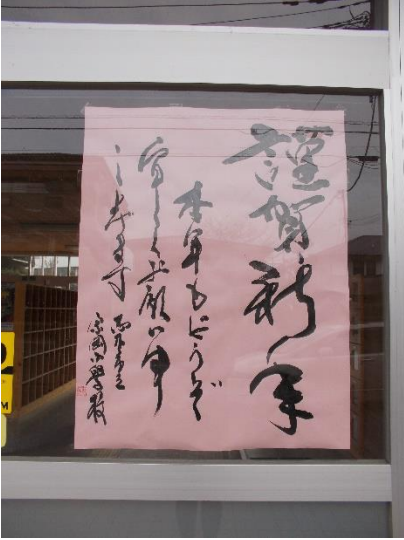 謹賀新年
本年もどうぞ
宜しくお願い申
し上げます
小學校